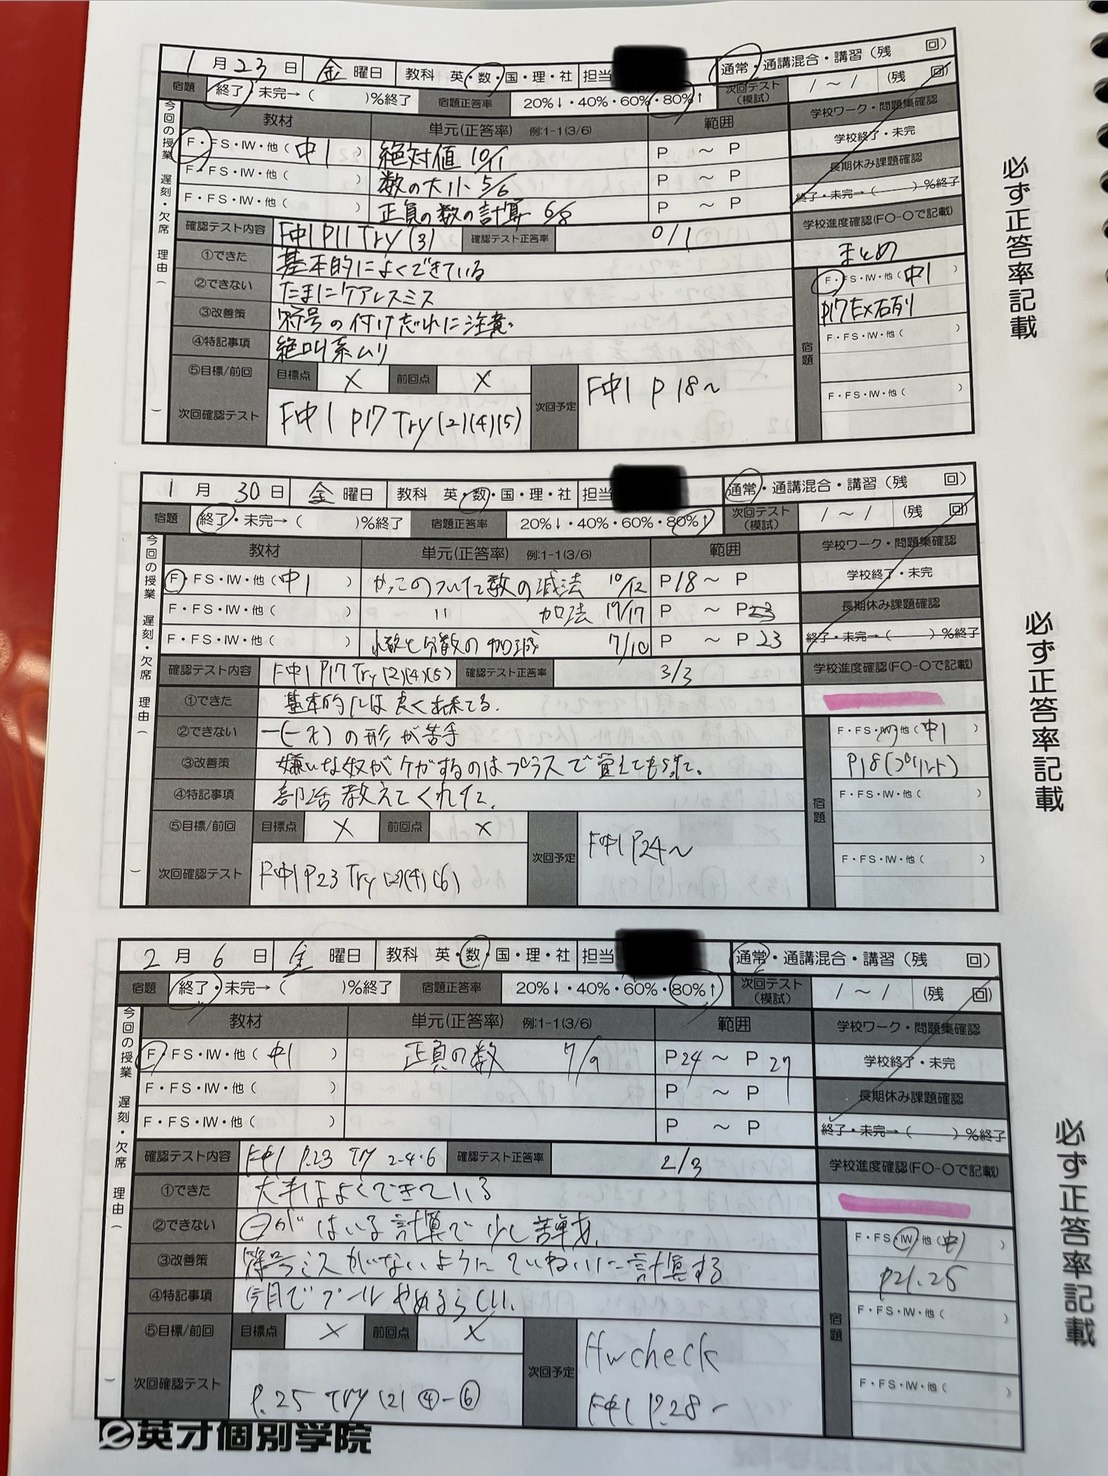 1月23日 金曜日 教科 英・数・国・理・社 担当 通常・通講混合・講習(残 回)
宿題 終了・未完→( )%終了 宿題正答率 20%↓・40%・60%・80%↑ 次回テスト(模試) / ~ / (残 回)
今回の授業 遅刻・欠席 理由( )
教材 単元(正答率) 例:1-1(3/6) 範囲 学校ワーク・問題集確認
F・FS・IW・他(中1 ) 絶対値 10/11 P ~ P 学校終了・未完
F・FS・IW・他( ) 数の大小 5/6 P ~ P 長期休み課題確認
F・FS・IW・他( ) 正負の数の計算 6/8 P ~ P 終了・未完→( )%終了
確認テスト内容 F中1 P11 Try (3) 確認テスト正答率 0/1 学校進度確認(FO-Oで記載)
①できた 基本的によくできている まとめ
②できない たまにケアレスミス 宿題 F・FS・IW・他(中1 )
③改善策 符号の付け忘れに注意。 P17 Ex右列
④特記事項 絶叫系ムリ F・FS・IW・他( )
⑤目標/前回 目標点 × 前回点 × 次回予定 F中1 P18~ F・FS・IW・他( )
次回確認テスト F中1 P17 Try (2)(4)(5)
必ず正答率記載
1月30日 金曜日 教科 英・数・国・理・社 担当 通常・通講混合・講習(残 回)
宿題 終了・未完→( )%終了 宿題正答率 20%↓・40%・60%・80%↑ 次回テスト(模試) / ~ / (残 回)
今回の授業 遅刻・欠席 理由( )
教材 単元(正答率) 例:1-1(3/6) 範囲 学校ワーク・問題集確認
F・FS・IW・他(中1 ) かっこのついた数の減法 10/12 P18~ P 学校終了・未完
F・FS・IW・他( ) 〃 加法 /17 P ~ P 長期休み課題確認
F・FS・IW・他( ) 小数と分数の加減 7/10 P ~ P23 終了・未完→( )%終了
確認テスト内容 F中1 P17 Try (2)(4)(5) 確認テスト正答率 3/3 学校進度確認(FO-Oで記載)
①できた 基本的には良く出来てる。
②できない の形が苦手 宿題 F・FS・IW・他(中1 )
③改善策 嫌いな奴がケガするのはプラスで覚えてもらった。 P18(プリント)
④特記事項 部活教えてくれた。 F・FS・IW・他( )
⑤目標/前回 目標点 × 前回点 × 次回予定 F中1 P24~ F・FS・IW・他( )
次回確認テスト F中1 P23 Try (2)(4)(6)
必ず正答率記載
2月6日 金曜日 教科 英・数・国・理・社 担当 通常・通講混合・講習(残 回)
宿題 終了・未完→( )%終了 宿題正答率 20%↓・40%・60%・80%↑ 次回テスト(模試) / ~ / (残 回)
今回の授業 遅刻・欠席 理由( )
教材 単元(正答率) 例:1-1(3/6) 範囲 学校ワーク・問題集確認
F・FS・IW・他(中1 ) 正負の数 7/9 P24 ~ P27 学校終了・未完
F・FS・IW・他( ) P ~ P 長期休み課題確認
F・FS・IW・他( ) P ~ P 終了・未完→( )%終了
確認テスト内容 F中1 P.23 Try 2-4・6 確認テスト正答率 2/3 学校進度確認(FO-Oで記載)
①できた 大半はよくできている
②できない ⊖がはいる計算で少し苦戦。 宿題 F・FS・IW・他(中1 )
③改善策 符号ミスがないようにていねいに計算する P21.25
④特記事項 今月でプールやめるらしい。 F・FS・IW・他( )
⑤目標/前回 目標点 × 前回点 × 次回予定 Hw check F・FS・IW・他( )
次回確認テスト P.25 Try (2) ④-⑥ F中1 P.28~
必ず正答率記載
英才個別学院